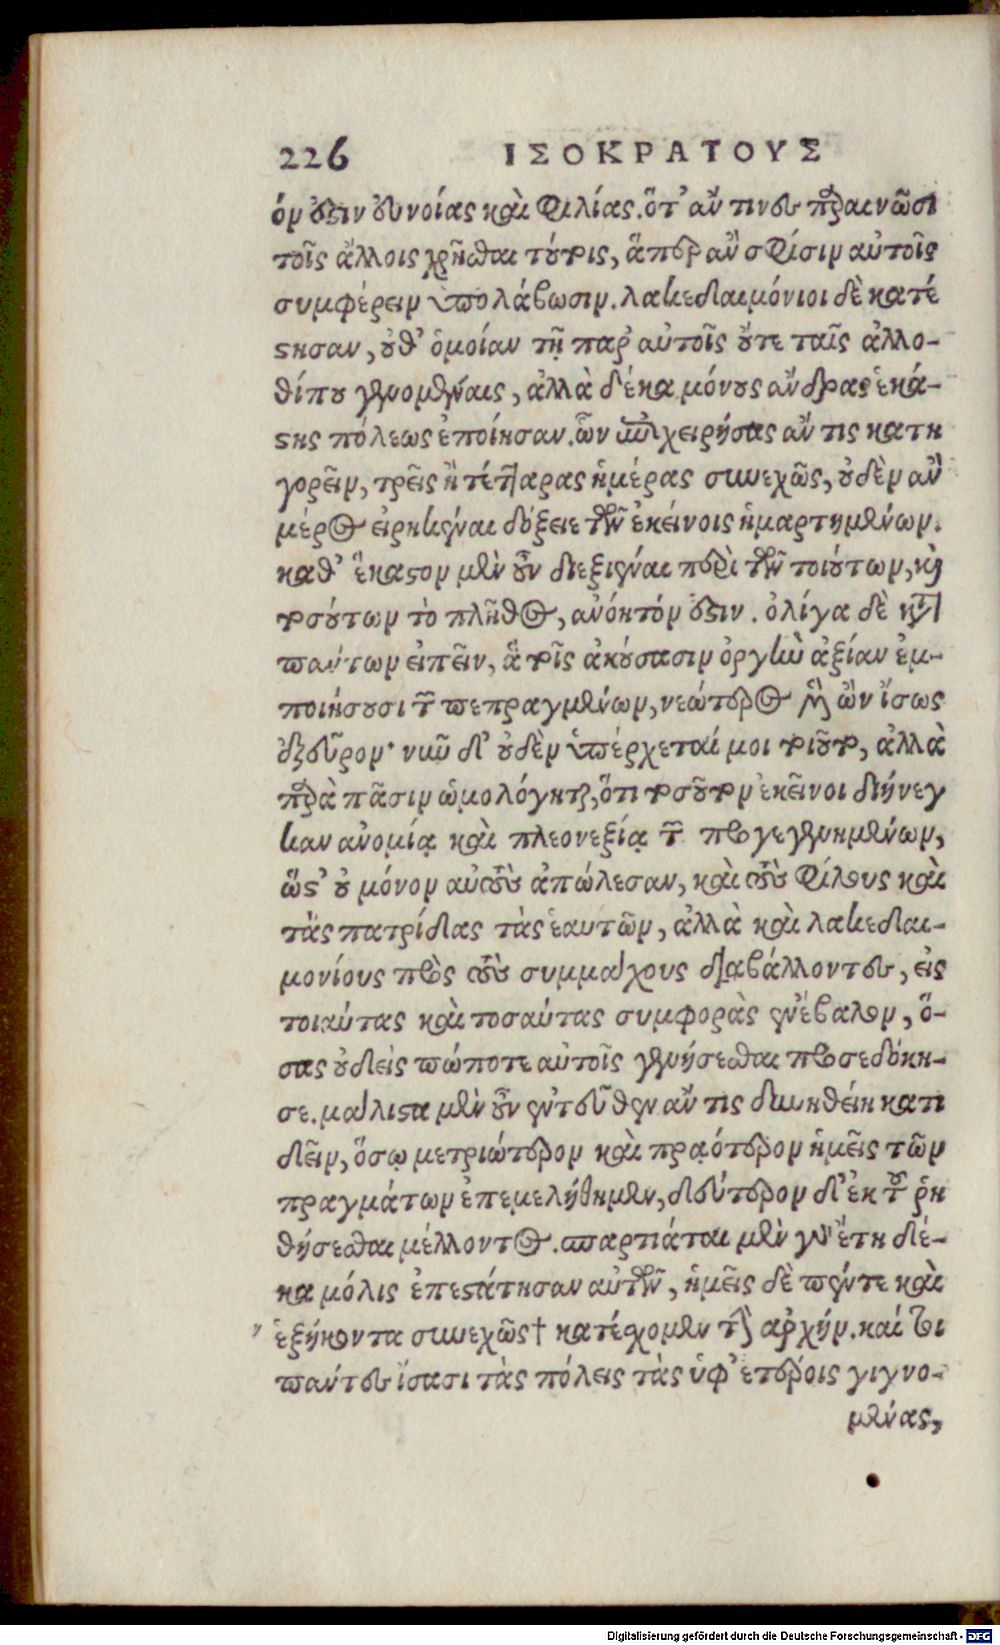 226 ΙΣΟΚΡΑΤΟΥΣ
όν ἐστιν εὐνοίας καὶ φιλίας. ὅτ' ἄν τινες παραινῶσι
τοῖς ἄλλοις χρῆσθαι τούτοις, ἅπερ ἂν σφίσιν αὐτοῖς
συμφέρειν ὑπολάβωσιν. λακεδαιμόνιοι δὲ κατέ
στησαν, οὔθ' ὁμοίαν τῇ παρ' αὐτοῖς οὔτε ταῖς ἄλλο-
θί που γενομέναις, ἀλλὰ δέκα μόνους ἄνδρας ἑκά-
στης πόλεως ἐποίησαν. ὧν ἐπιχειρήσας ἄν τις κατη
γορεῖν, τρεῖς ἢ τέτταρας ἡμέρας συνεχῶς, οὐδὲν ἂν
μέρος εἰρηκέναι δόξειε τῶν ἐκείνοις ἡμαρτημένων.
καθ' ἕκαστον μὲν οὖν διεξιέναι περὶ τῶν τοιούτων, καὶ
τοσούτων τὸ πλῆθος, ἀνόητόν ἐστιν. ὀλίγα δὲ κατὰ
πάντων εἰπεῖν, ἃ τοῖς ἀκούσασιν ὀργὴν ἀξίαν ἐμ-
ποιήσουσι τῶν πεπραγμένων, νεώτερος μὲν ὢν ἴσως
ἐξεῦρον· νῦν δ' οὐδὲν ὑπέρχεταί μοι τοιοῦτο, ἀλλὰ
παρὰ πᾶσιν ὡμολόγηται, ὅτι τοσοῦτον ἐκεῖνοι διήνεγ
καν ἀνομίᾳ καὶ πλεονεξίᾳ τῶν προγεγενημένων,
ὥστ' οὐ μόνον αὑτοὺς ἀπώλεσαν, καὶ τοὺς φίλους καὶ
τὰς πατρίδας τὰς ἑαυτῶν, ἀλλὰ καὶ λακεδαι-
μονίους πρὸς τοὺς συμμάχους διαβάλλοντες, εἰς
τοιαύτας καὶ τοσαύτας συμφορὰς ἐνέβαλον, ὅ-
σας οὐδεὶς πώποτε αὐτοῖς γενήσεσθαι προσεδόκη-
σε. μάλιστα μὲν οὖν ἐντεῦθεν ἄν τις δυνηθείη κατι
δεῖν, ὅσῳ μετριώτερον καὶ πραότερον ἡμεῖς τῶν
πραγμάτων ἐπεμελήθημεν, δεύτερον δ' ἐκ τοῦ ῥη
θήσεσθαι μέλλοντος. σπαρτιάται μὲν γὰρ ἔτη δέ-
κα μόλις ἐπεστάτησαν αὐτῶν, ἡμεῖς δὲ πέντε καὶ
ἑξήκοντα συνεχῶς† κατέσχομεν τὴν ἀρχήν. καί τοι
πάντες ἴσασι τὰς πόλεις τὰς ὑφ' ἑτέροις γιγνο-
μένας,
Digitalisierung gefördert durch die Deutsche Forschungsgemeinschaft - DFG